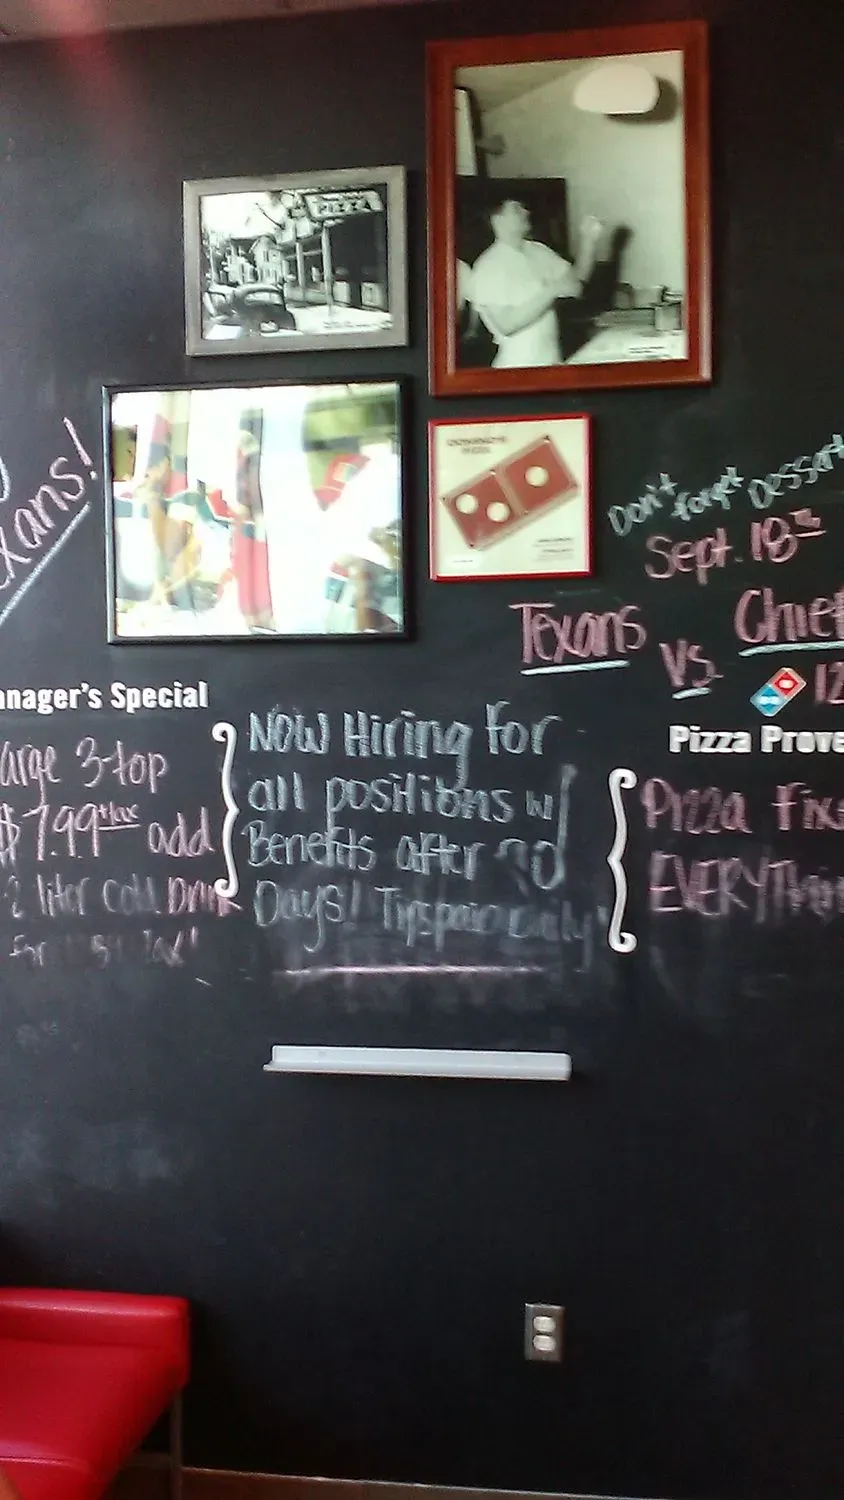 exans!
PIZZA
DOMINO'S
PIZZA
Don't forget Dessert
Sept. 18th
Texans vs. Chief
12
anager's Special
arge 3-top
$7.99+tax add
2 liter cold Drink
for
Now Hiring for
all positions w/
Benefits after 90
Days! Tips paid daily
Pizza Prove
Pizza Fixe
EVERYThin